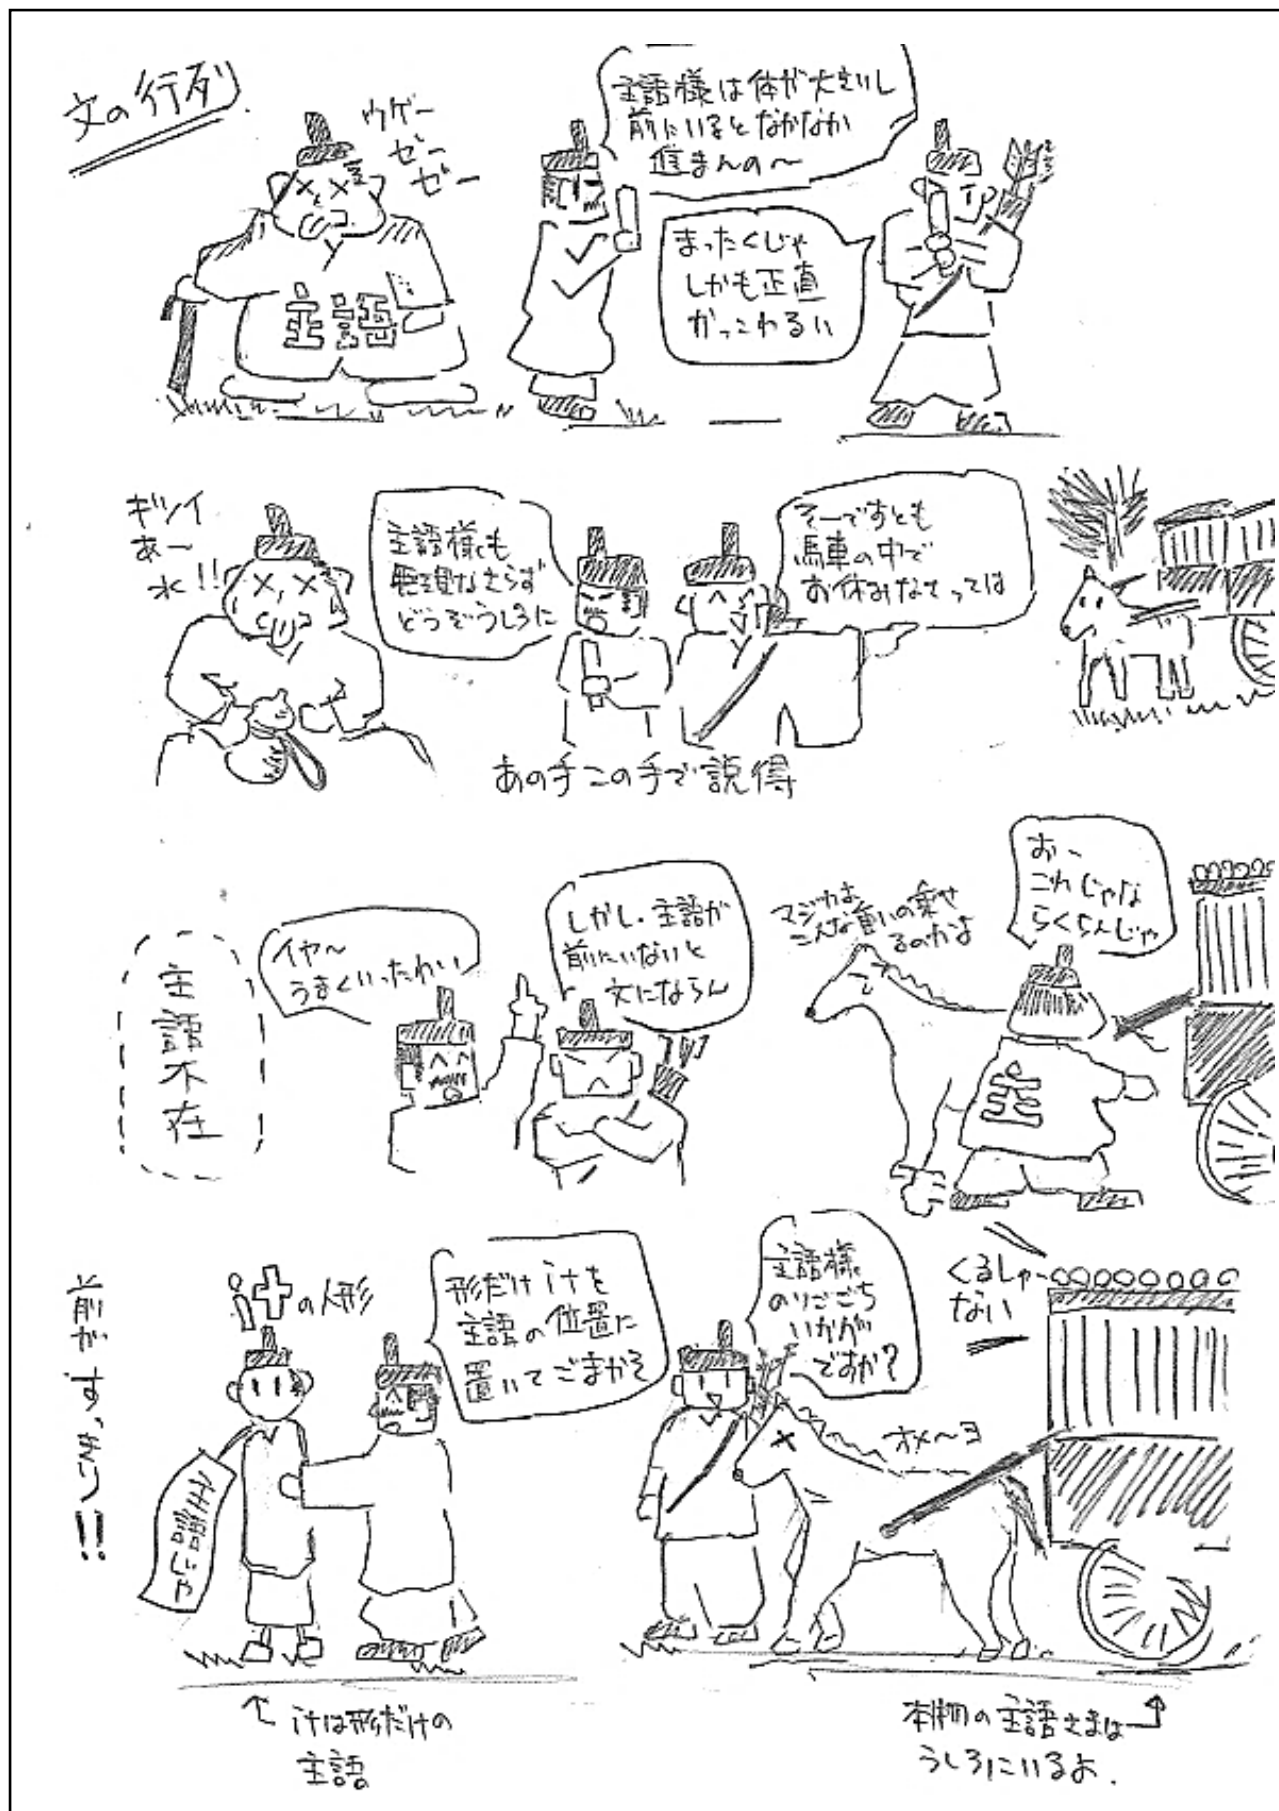 文の行列
ウゲー
ゼー
ゼー
主語様は体が大きいし
前にいるとなかなか
進まんの〜
まったくじゃ
しかも正直
かっこわるい
主語
キツイ
あ〜
水!!
主語様も
無理なさらず
どうぞうしろに
そーですとも
馬車の中で
お休みなさっては
あの手この手で説得
主語不在
イヤ〜
うまくいったわい
しかし、主語が
前にいないと
文にならん
マジかよ
こんな重いの乗せ
るのかよ
お〜
これじゃな
らくちんじゃ
主
前がすっきり!!
itの人形
形だけitを
主語の位置に
置いてごまかそ
主語じゃ
主語様
のりごごち
いかが
ですか?
くるしゅー
ない
オメ〜ヨ
itは形だけの
主語。
本物の主語さまは
うしろにいるよ.